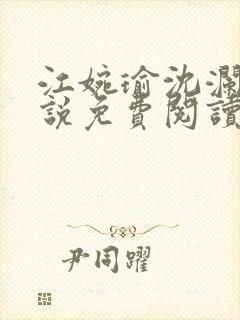 江婉瑜沈瀾
說免費閱讀
尹同躍